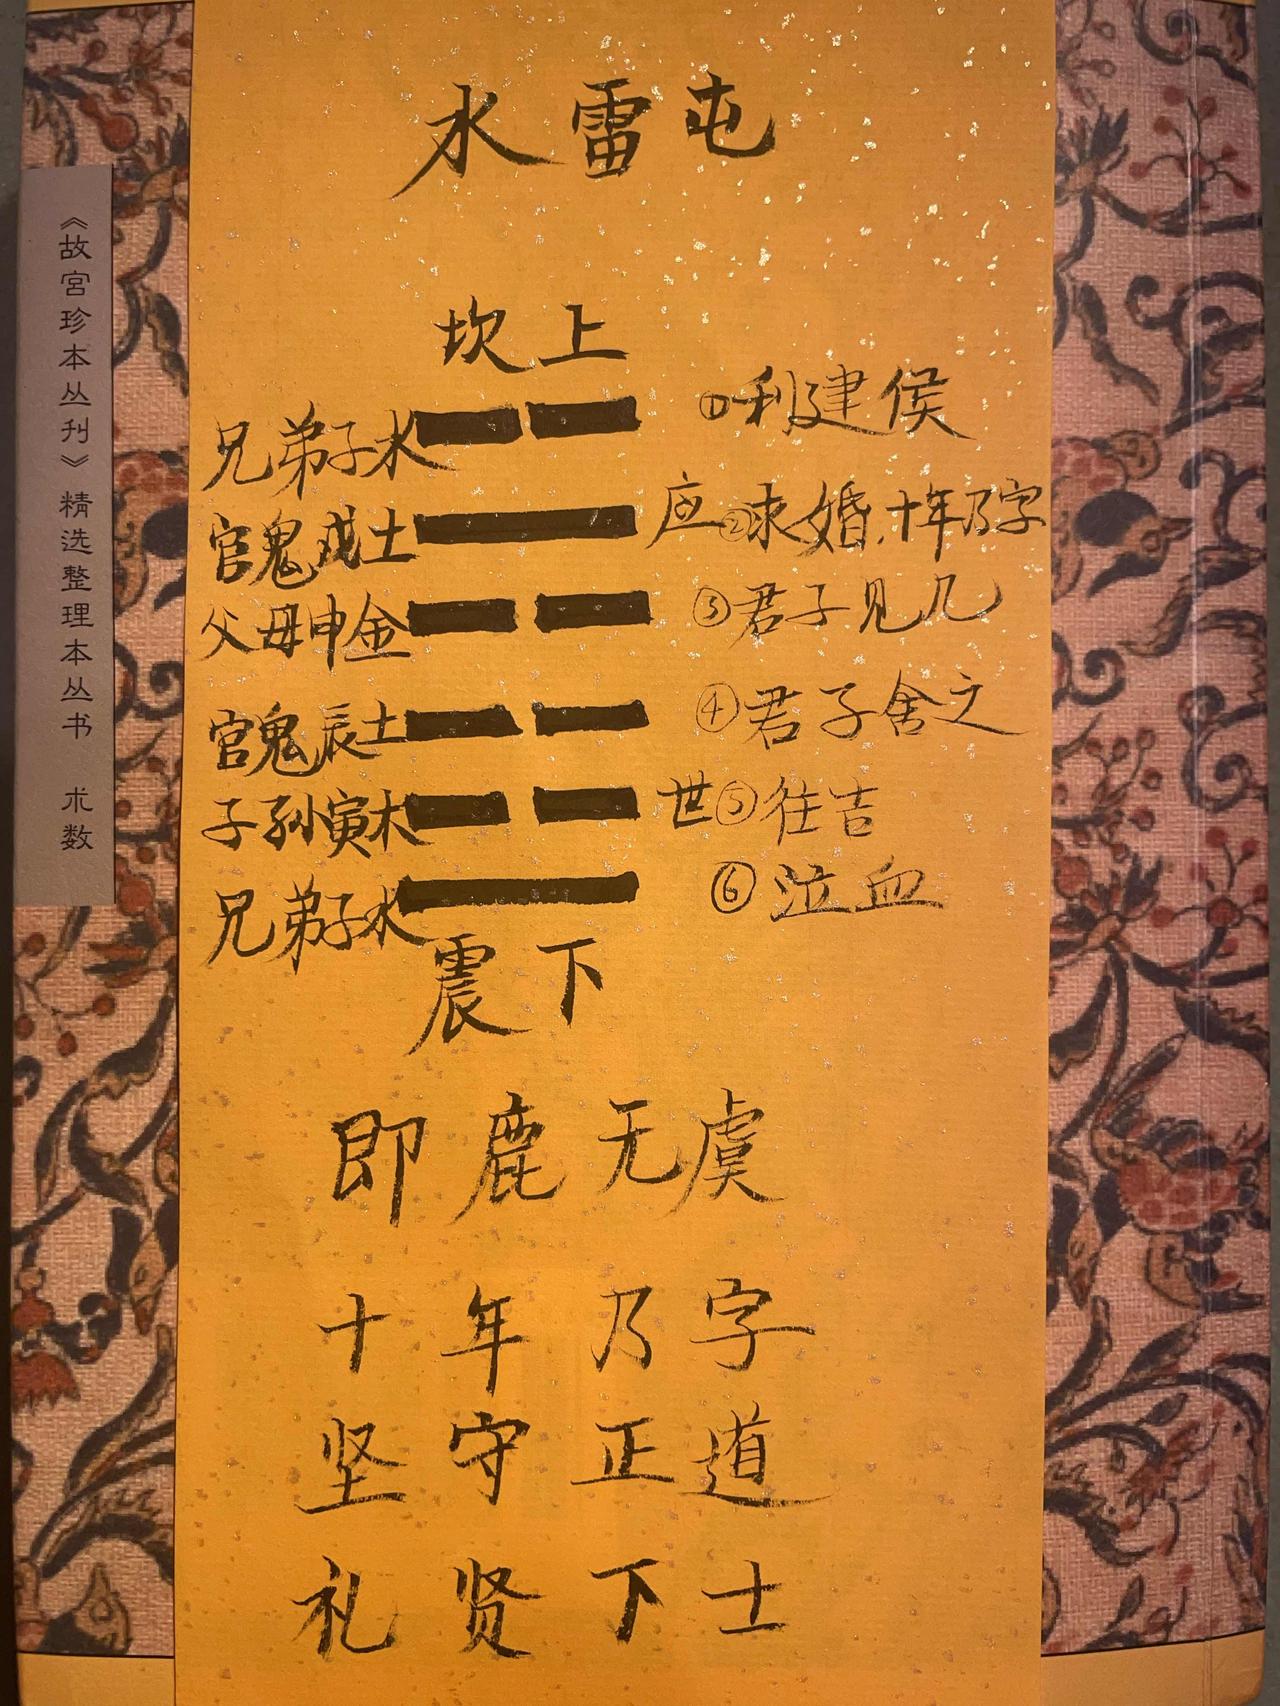 水雷屯
坎上
兄弟子水 ①利建侯
官鬼戌土 应②求婚,十年乃字
父母申金 ③君子见几
官鬼辰土 ④君子舍之
子孙寅木 世⑤往吉
兄弟子水 ⑥泣血
震下
即鹿无虞
十年乃字
坚守正道
礼贤下士
《故宫珍本丛刊》精选整理本丛书 术数